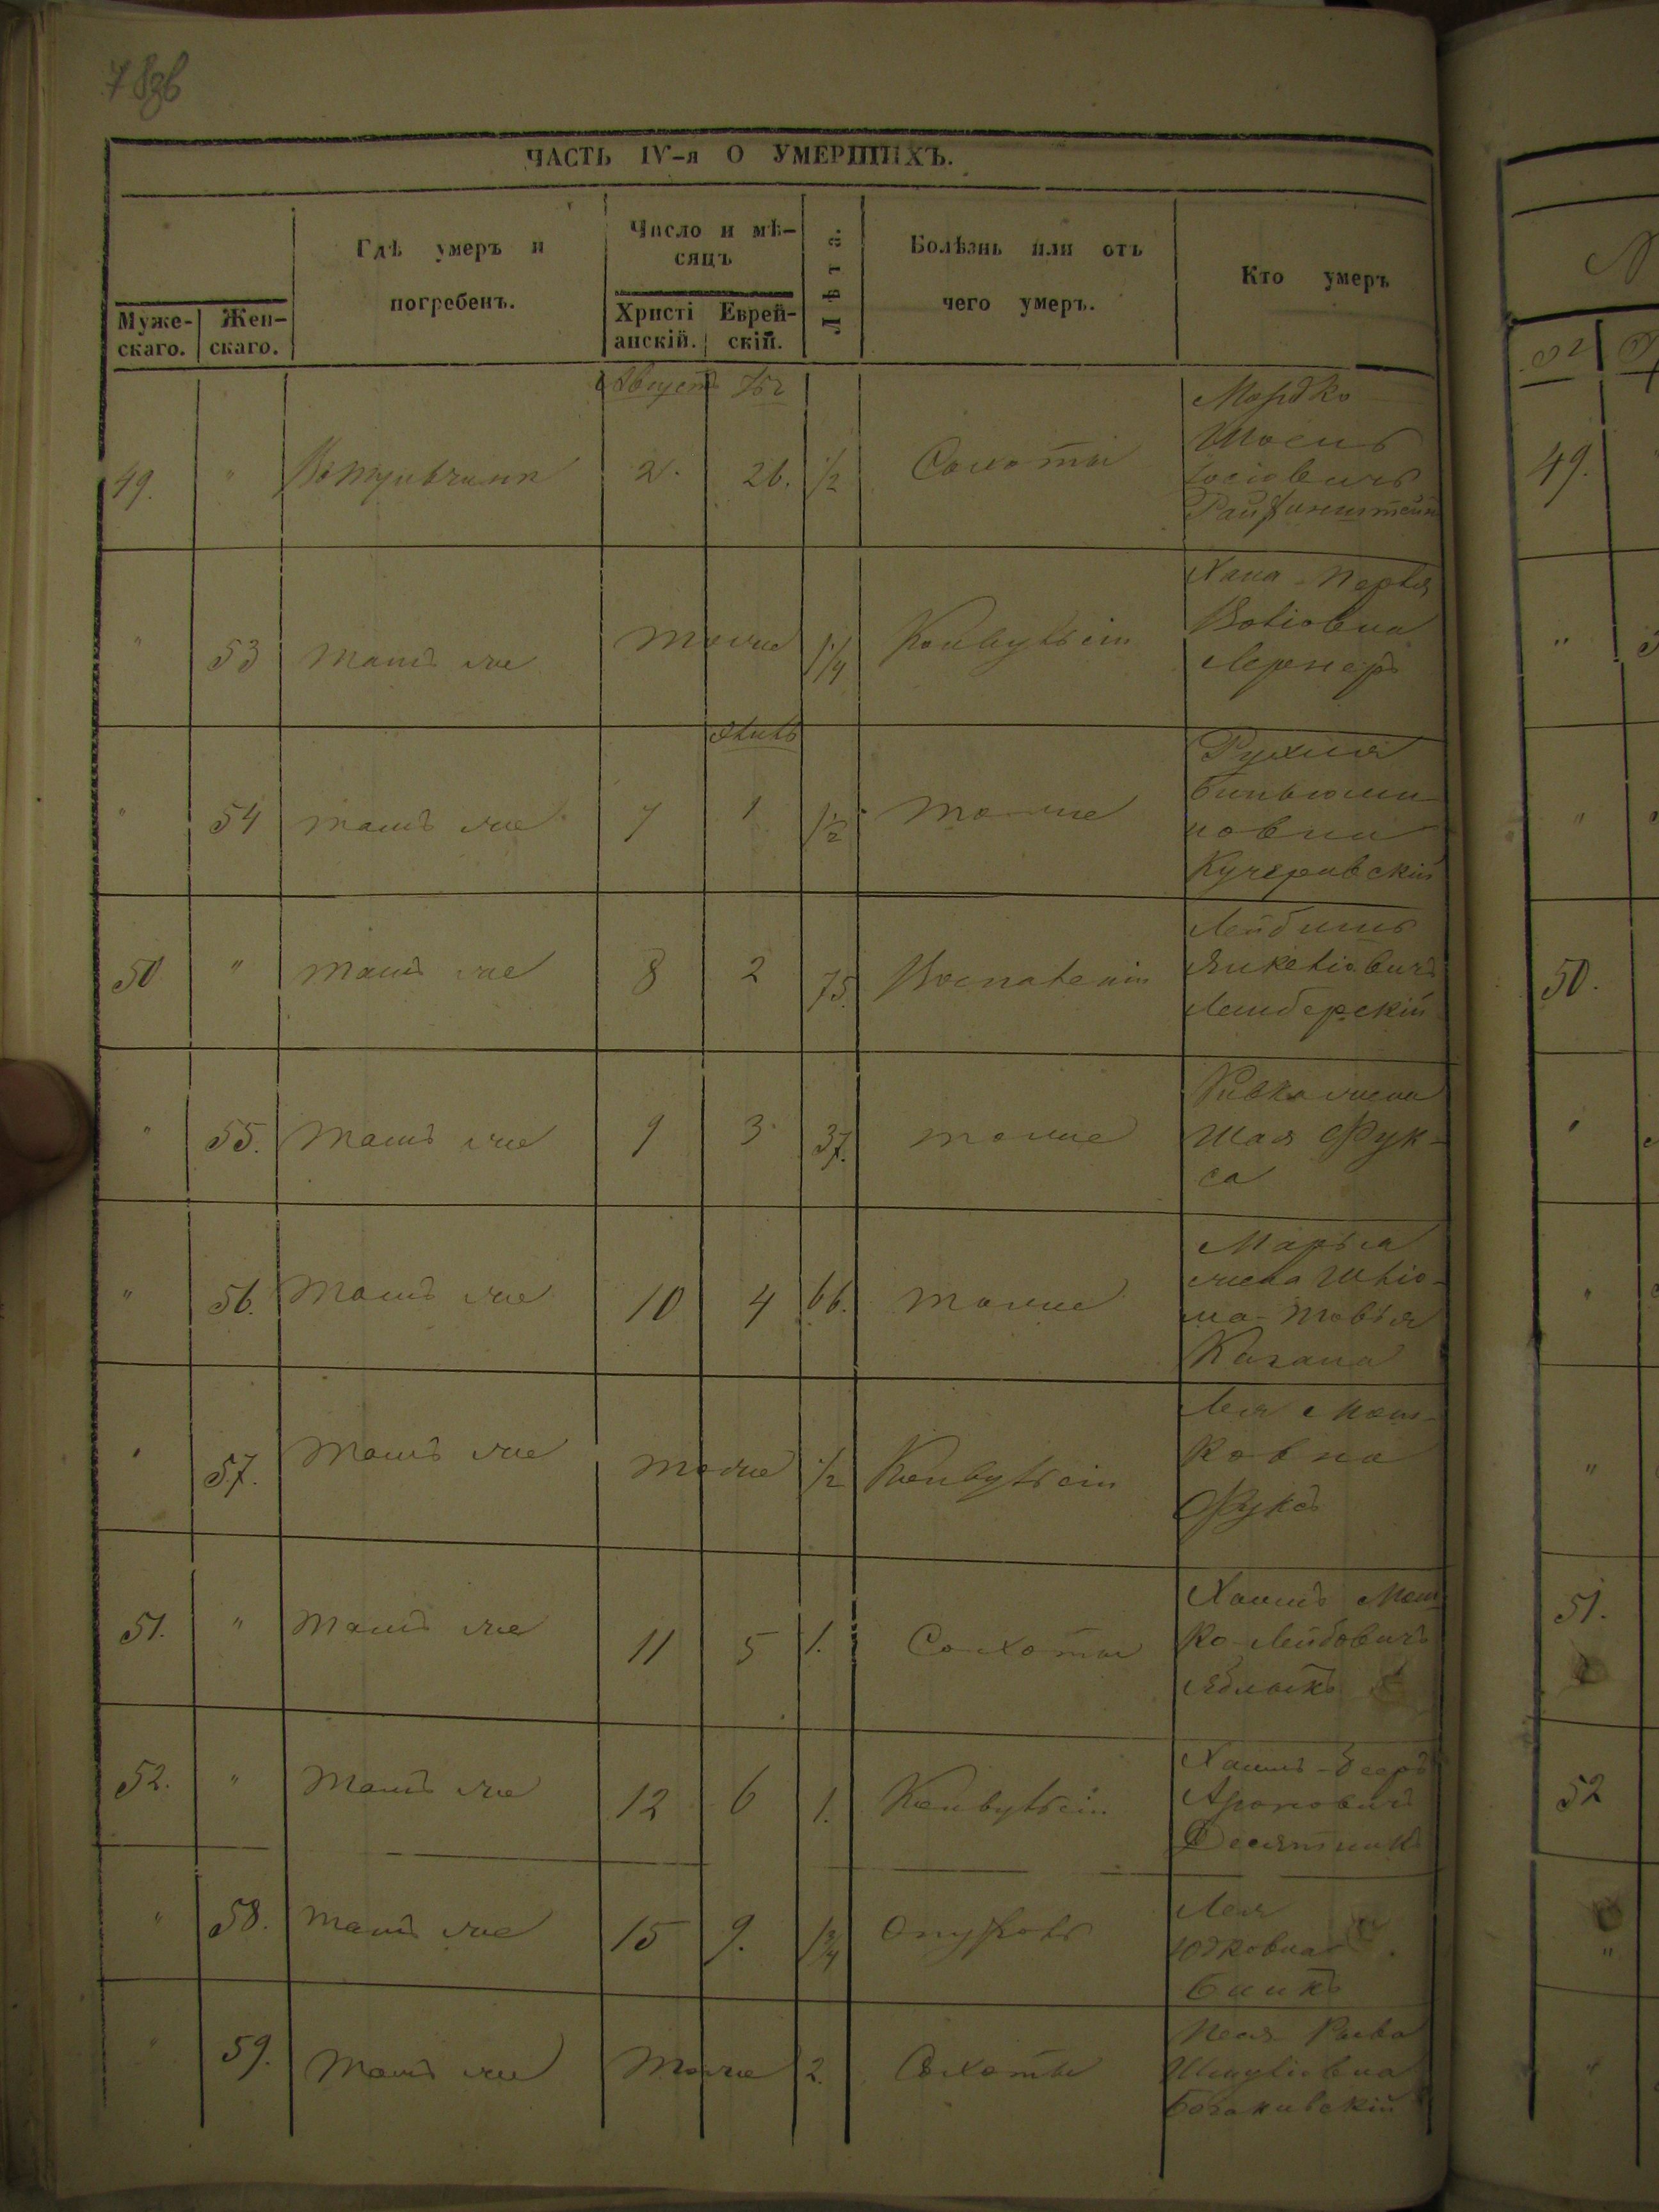 ЧАСТЬ IV-я О УМЕРШИХЪ.
Муже-
скаго.
Жен-
скаго.
Гдѣ умеръ и
погребенъ.
Число и мѣ-
сяцъ
Христі
анскій.
Еврей-
скій.
Лѣта.
Болѣзнь или отъ
чего умеръ.
Кто умеръ
Августъ
49. " 2. 26. 1/2 Сохоты
Мордко
Іосіовичъ
" 53 тамъ же тоже 1/4 Конвульсіи
Хана-Перля
Вольовна
Лернеръ
Элюль
" 54 тамъ же 7 1 1/2 тоже
Рухля
Биньоми
новна
Кучеровскій
50 " тамъ же 8 2 75. Воспаленія
Лейбишъ
Янкеліовичъ
Лемберскій
" 55. тамъ же 9 3 37. тоже
Ривка жена
Шая Фук-
са
" 56. тамъ же 10 4 66. тоже
Марья
жена Шліо-
ма-Товія
Кагана
" 57. тамъ же тоже 1/2 Конвульсіи
Лея Мош-
ковна
Фуксъ
51. " тамъ же 11 5 1. Сохоты
Хаимъ Мош
ко-Лейбовичъ
52. " тамъ же 12 6 1. Конвульсіи
Хаимъ-Беръ
Ароновичъ
Десятникъ
" 58. тамъ же 15 9. 1 3/4 Опухоль
Лея
Юдковна
Бикъ
" 59. тамъ же тоже 2. Сохоты
Песя
Шмуліовна
49.
50.
51.
52